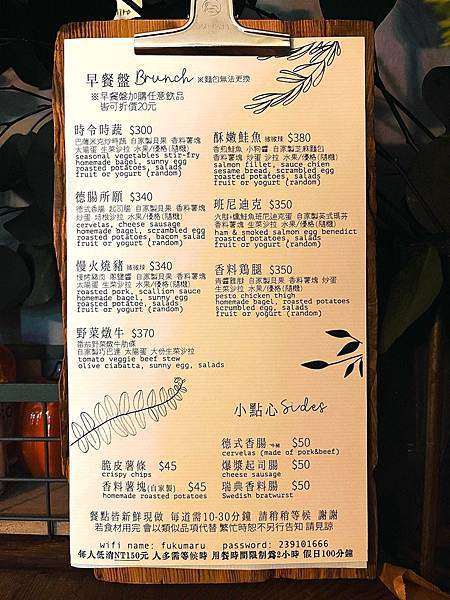 早餐盤 Brunch ※麵包無法更換
※早餐盤加購任意飲品
皆可折價20元
時令時蔬 $300
巴薩米克炒時蔬 自家製貝果 香料薯塊
太陽蛋 生菜沙拉 水果/優格(隨機)
seasonal vegetables stir-fry
homemade bagel, sunny egg
roasted potatoes, salads
fruit or yogurt (random)
德腸所願 $340
德式香腸 起司腸 自家製貝果 香料薯塊
炒蛋 培根沙拉 水果/優格(隨機)
cervelas, cheese sausage
homemade bagel, scrambled egg
roasted potatoes, bacon salad
fruit or yogurt (random)
慢火燒豬 辣辣辣 $340
慢烤豬肉 蔥鹽醬 自家製貝果 香料薯塊
太陽蛋 生菜沙拉 水果/優格(隨機)
roasted pork, scallion sauce
homemade bagel, sunny egg
roasted potatoe, salads
fruit or yogurt (random)
野菜燉牛 $370
番茄野菜燉牛肋條
自家製巧巴達 太陽蛋 大份生菜沙拉
tomato veggie beef stew
olive ciabatta, sunny egg, salads
酥嫩鮭魚 辣辣辣 $380
香煎鮭魚 小狗醬 自家製芝麻麵包
香料薯塊 炒蛋 沙拉 水果/優格(隨機)
salmon fillet, sauce chien
sesame bread, scrambled egg
roasted potatoes, salads
fruit or yogurt (random)
班尼迪克 $350
火腿+燻鮭魚班尼迪克蛋 自家製英式瑪芬
香料薯塊 生菜沙拉 水果/優格(隨機)
ham & smoked salmon egg benedict
roasted potatoes, salads
fruit or yogurt (random)
香料雞腿 $350
青醬雞腿 自家製貝果 香料薯塊 炒蛋
生菜沙拉 水果/優格(隨機)
pesto chicken thigh
homemade bagel, roasted potatoes
scrambled egg, salads
fruit or yogurt (random)
小點心 Sides
德式香腸 $50
cervelas (made of pork&beef)
脆皮薯條 $45
crispy chips
爆漿起司腸 $50
cheese sausage
香料薯塊(自家製) $45
homemade roasted potatoes
瑞典香料腸 $50
Swedish bratwurst
餐點皆新鮮現做 每道需10-30分鐘 請稍稍等候 謝謝
若食材用完 會以類似品項代替 繁忙時恕不另行告知 請見諒
wifi name: fukumaru password: 239101666
每人低消NT150元 人多需等候時 用餐時間限制為2小時 假日100分鐘